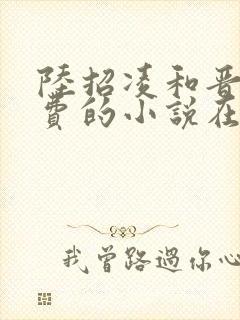 陸招凌和晋
費的小説在
我曾路過你心